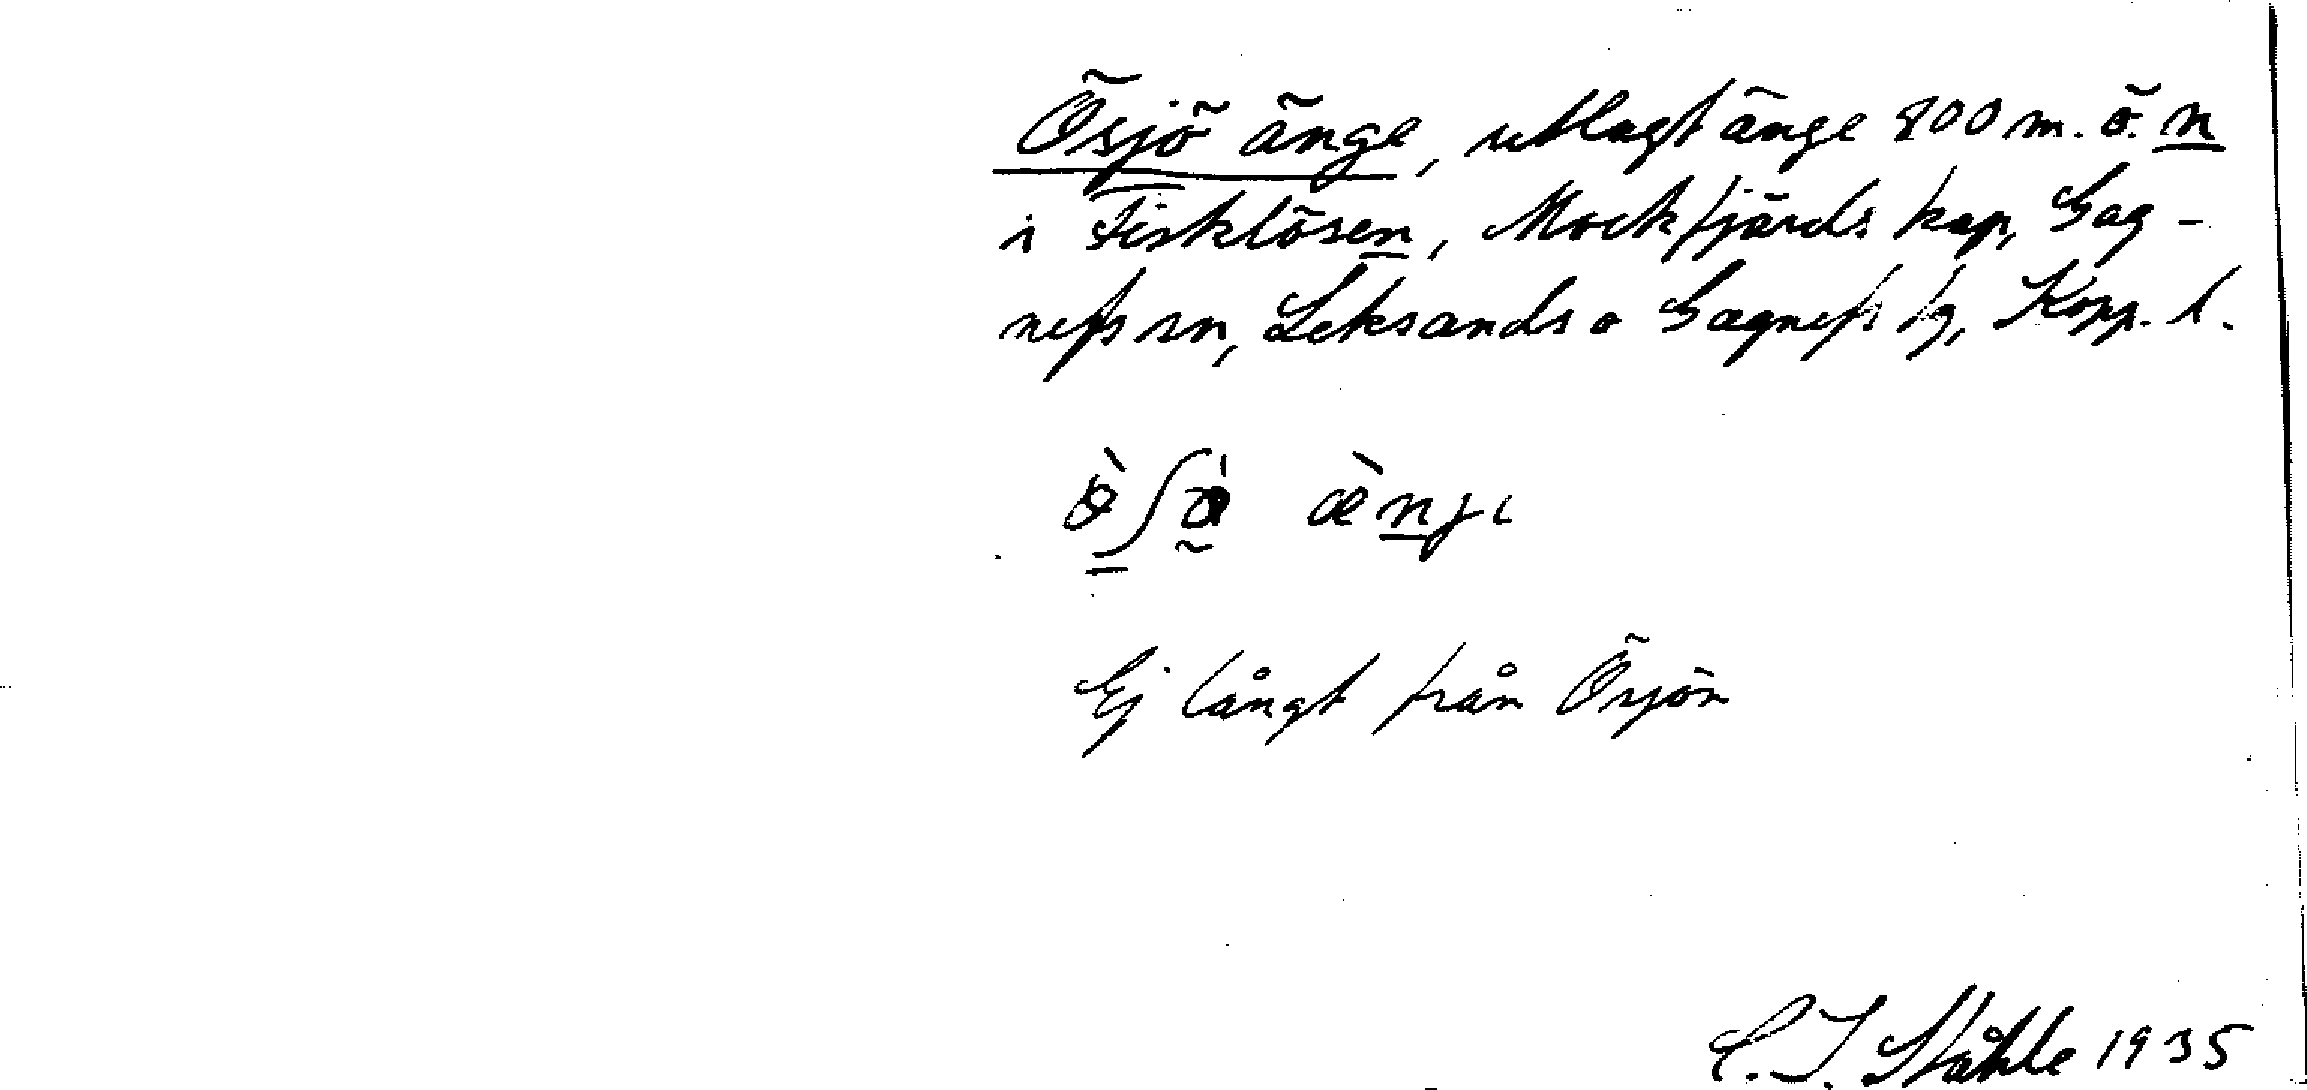 Ösjö änge, utlagt änge 800 m. ö. n
i Fisklösen, Mockfjärds kap, Gag-
nefs sn, Leksands o Gagnefs tg, Kopp. l.
Ej långt från Ösjön
C. I. Ståhle 1935